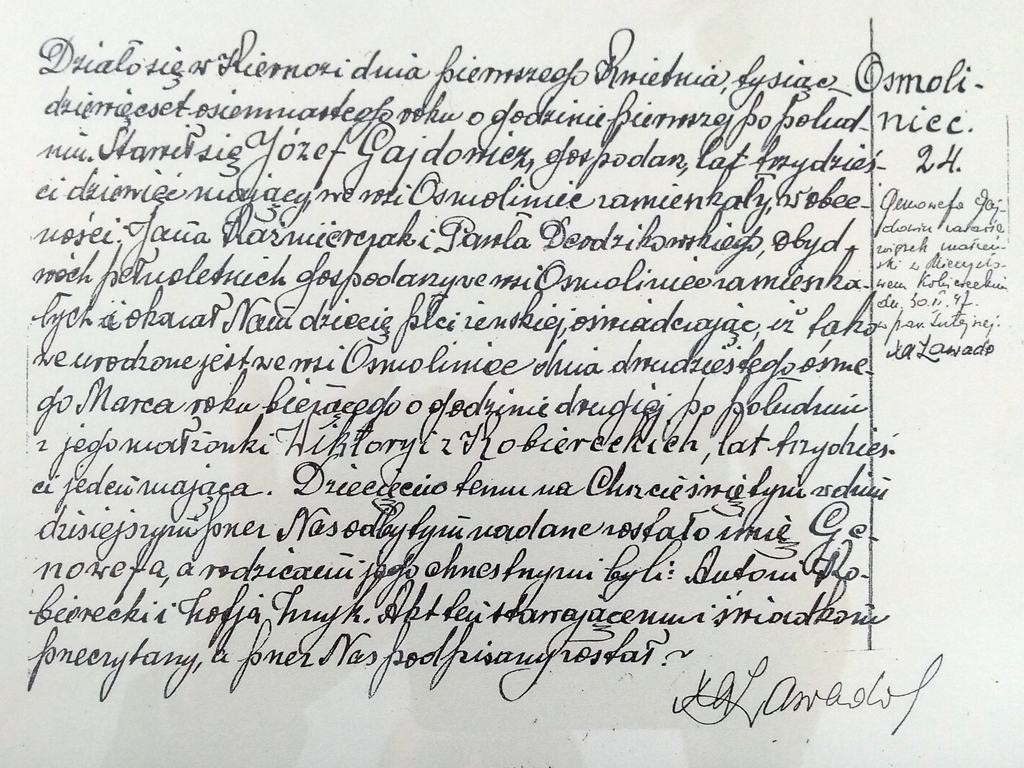 Działo się w Kiernozi dnia pierwszego Kwietnia, tysiąc
dziewięćset osiemnastego roku o godzinie pierwszej po połud-
niu. Stawił się Józef Gajdowicz, gospodarz, lat trzydzieś-
ci dziewięć mający, we wsi Osmolinie zamieszkały, w obec-
ności: Jana Kaźmierczak i Pawła Derdzikowskiego, obyd-
wóch pełnoletnich gospodarzy we wsi Osmolinie zamieszka-
łych i okazał Nam dziecię płci żeńskiej, oświadczając, iż tako
we urodzone jest we wsi Osmolinie dnia dwudziestego ósme-
go Marca roku bieżącego o godzinie drugiej po południu
z jego małżonki Wiktoryi z Kobiereckich, lat trzydzieś-
ci jeden mająca. Dziecięciu temu na Chrzcie świętym w dniu
dzisiejszym przez Nas odbytym nadane zostało imię Ge-
nowefa, a rodzicami jego chrzestnymi byli: Antoni Ko-
bierecki i Zofja Żmyk. Akt ten stawającemu i świadkom
przeczytany, a przez Nas podpisany został.
XAZawado
Osmoli-
niec.
24.
Genowefa Gaj-
dowicz zawarła
związek małżeń-
ski z Mieczysła-
wem
dn. 30.IV.47.
w par. tutejszej.
XAZawado